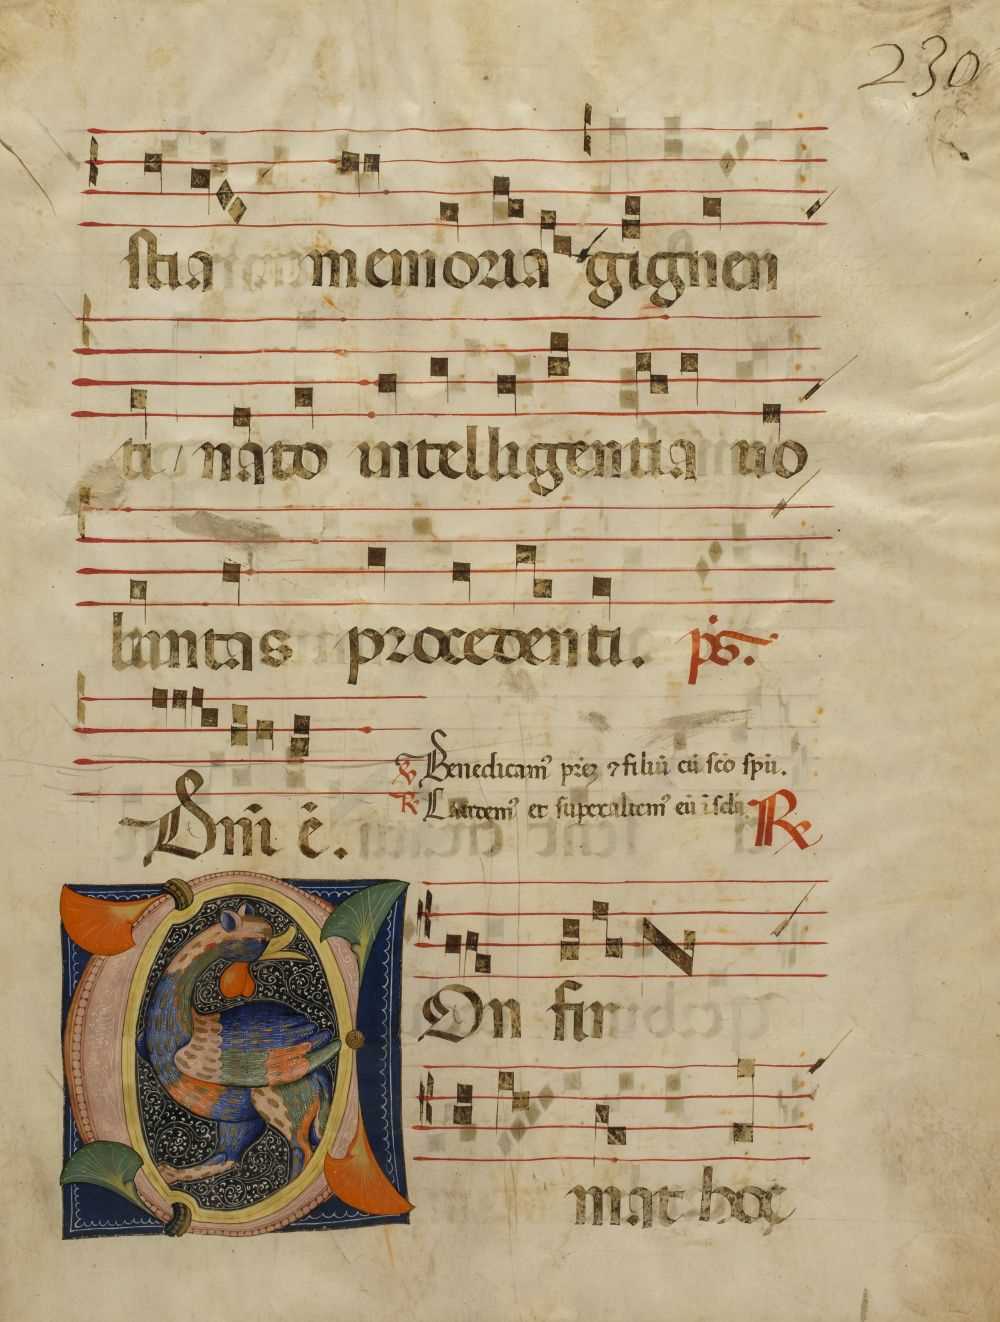 230
stia memoria gignen
ti nato intelligentia uo
luntas procedenti. ps.
Dm̄ ē.
℣ Benedicam᷒ prēz ⁊ filiū cū scō spū.
℟ Laudem᷒ et superexaltem᷒ eū ī scl̄a. ℟
On fir
mat hoc